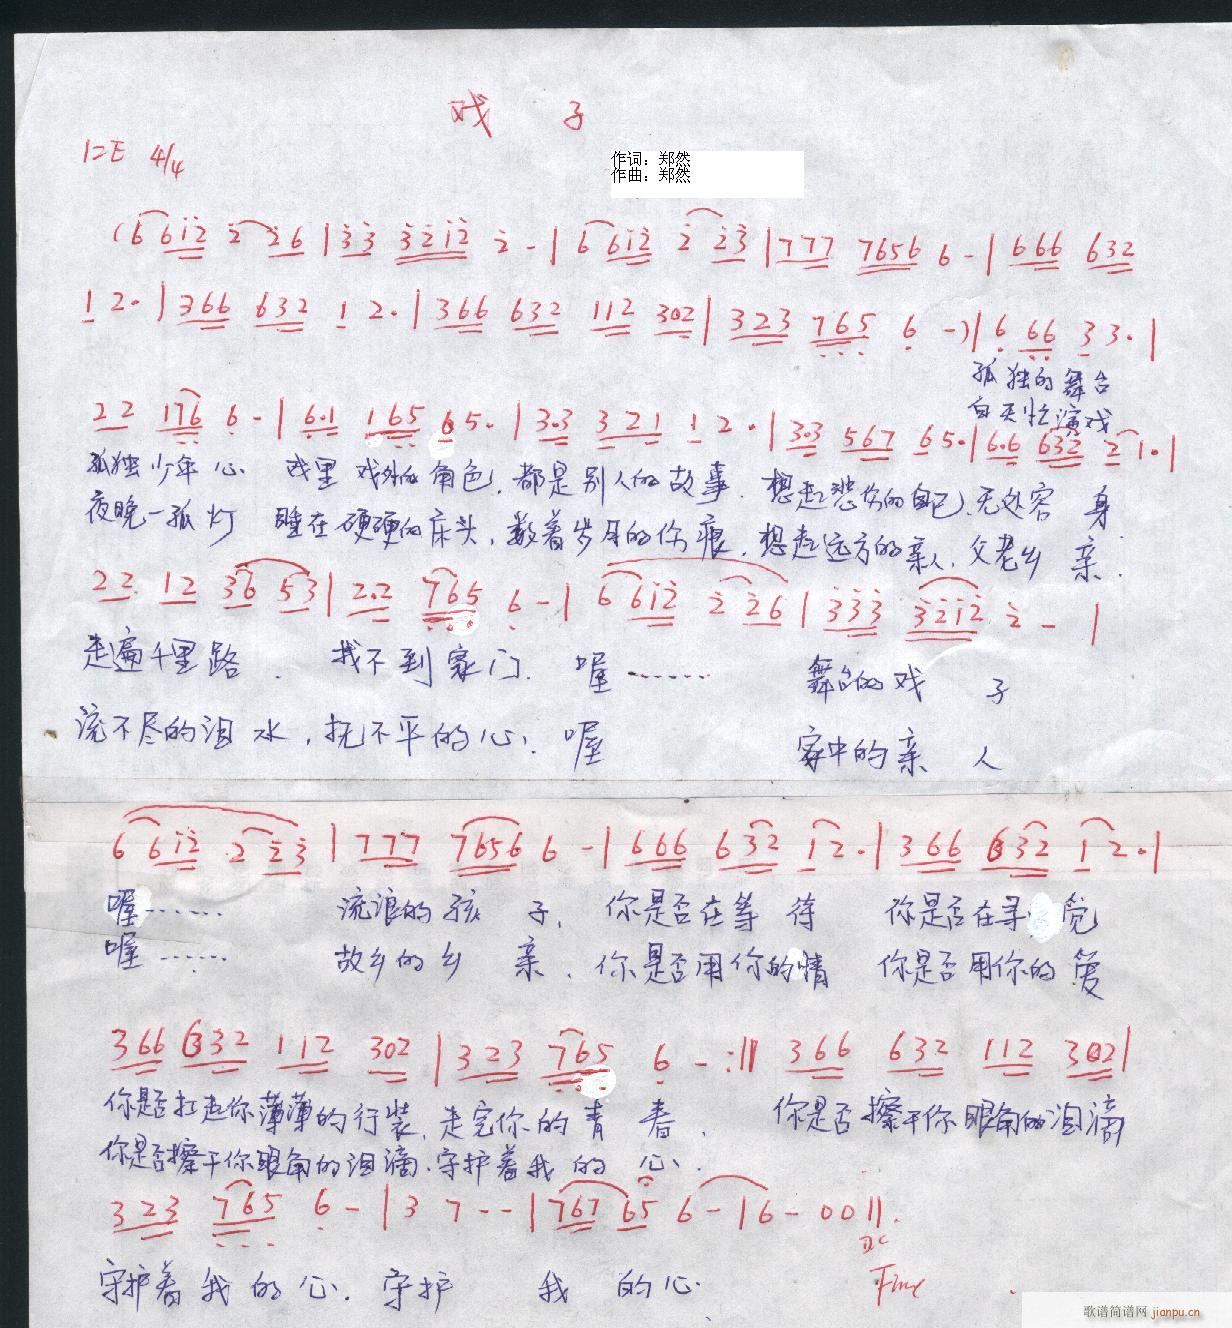 戏 子
1=E 4/4
作词：郑然
作曲：郑然
(6 6i2 2 26 | 33 3212 2 - | 6 6i2 2 23 | 777 7656 6 - | 666 632
1 2. | 366 632 1 2. | 366 632 112 302 | 323 765 6 -) | 6 66 3 3. |
孤独的舞台
白天忙演戏
22 176 6 - | 6.1 165 65. | 3.3 321 1 2. | 3.3 567 65. | 6.6 632 2 1. |
孤独少年心 戏里戏外的角色，都是别人的故事．想起悲伤的自己，无处容身
夜晚一孤灯 睡在硬硬的床头，数着岁月的伤痕，想起远方的亲人，父老乡亲．
22 12 36 53 | 2.2 765 6 - | 6 6i2 2 26 | 333 3212 2 - |
走遍千里路． 找不到家门． 喔······ 舞台的戏 子
流不尽的泪水，抚不平的心． 喔 家中的亲 人
6 6i2 2 23 | 777 7656 6 - | 666 632 12. | 366 632 12. |
喔······ 流浪的孩 子， 你是否在等 待 你是否在寻觅
喔······ 故乡的乡 亲． 你是否用你的情 你是否用你的爱
366 632 112 302 | 323 765 6 - :|| 366 632 112 302 |
你是否扛起你薄薄的行装，走完你的青 春， 你是否擦干你眼角的泪滴
你是否擦干你眼角的泪滴．守护着我 的 心．
323 765 6 - | 3 7 - - | 767 65 6 - | 6 - 00 ||.
D.C
守护着我 的 心．守护 我 的心． Fine
歌谱简谱网 jianpu.cn